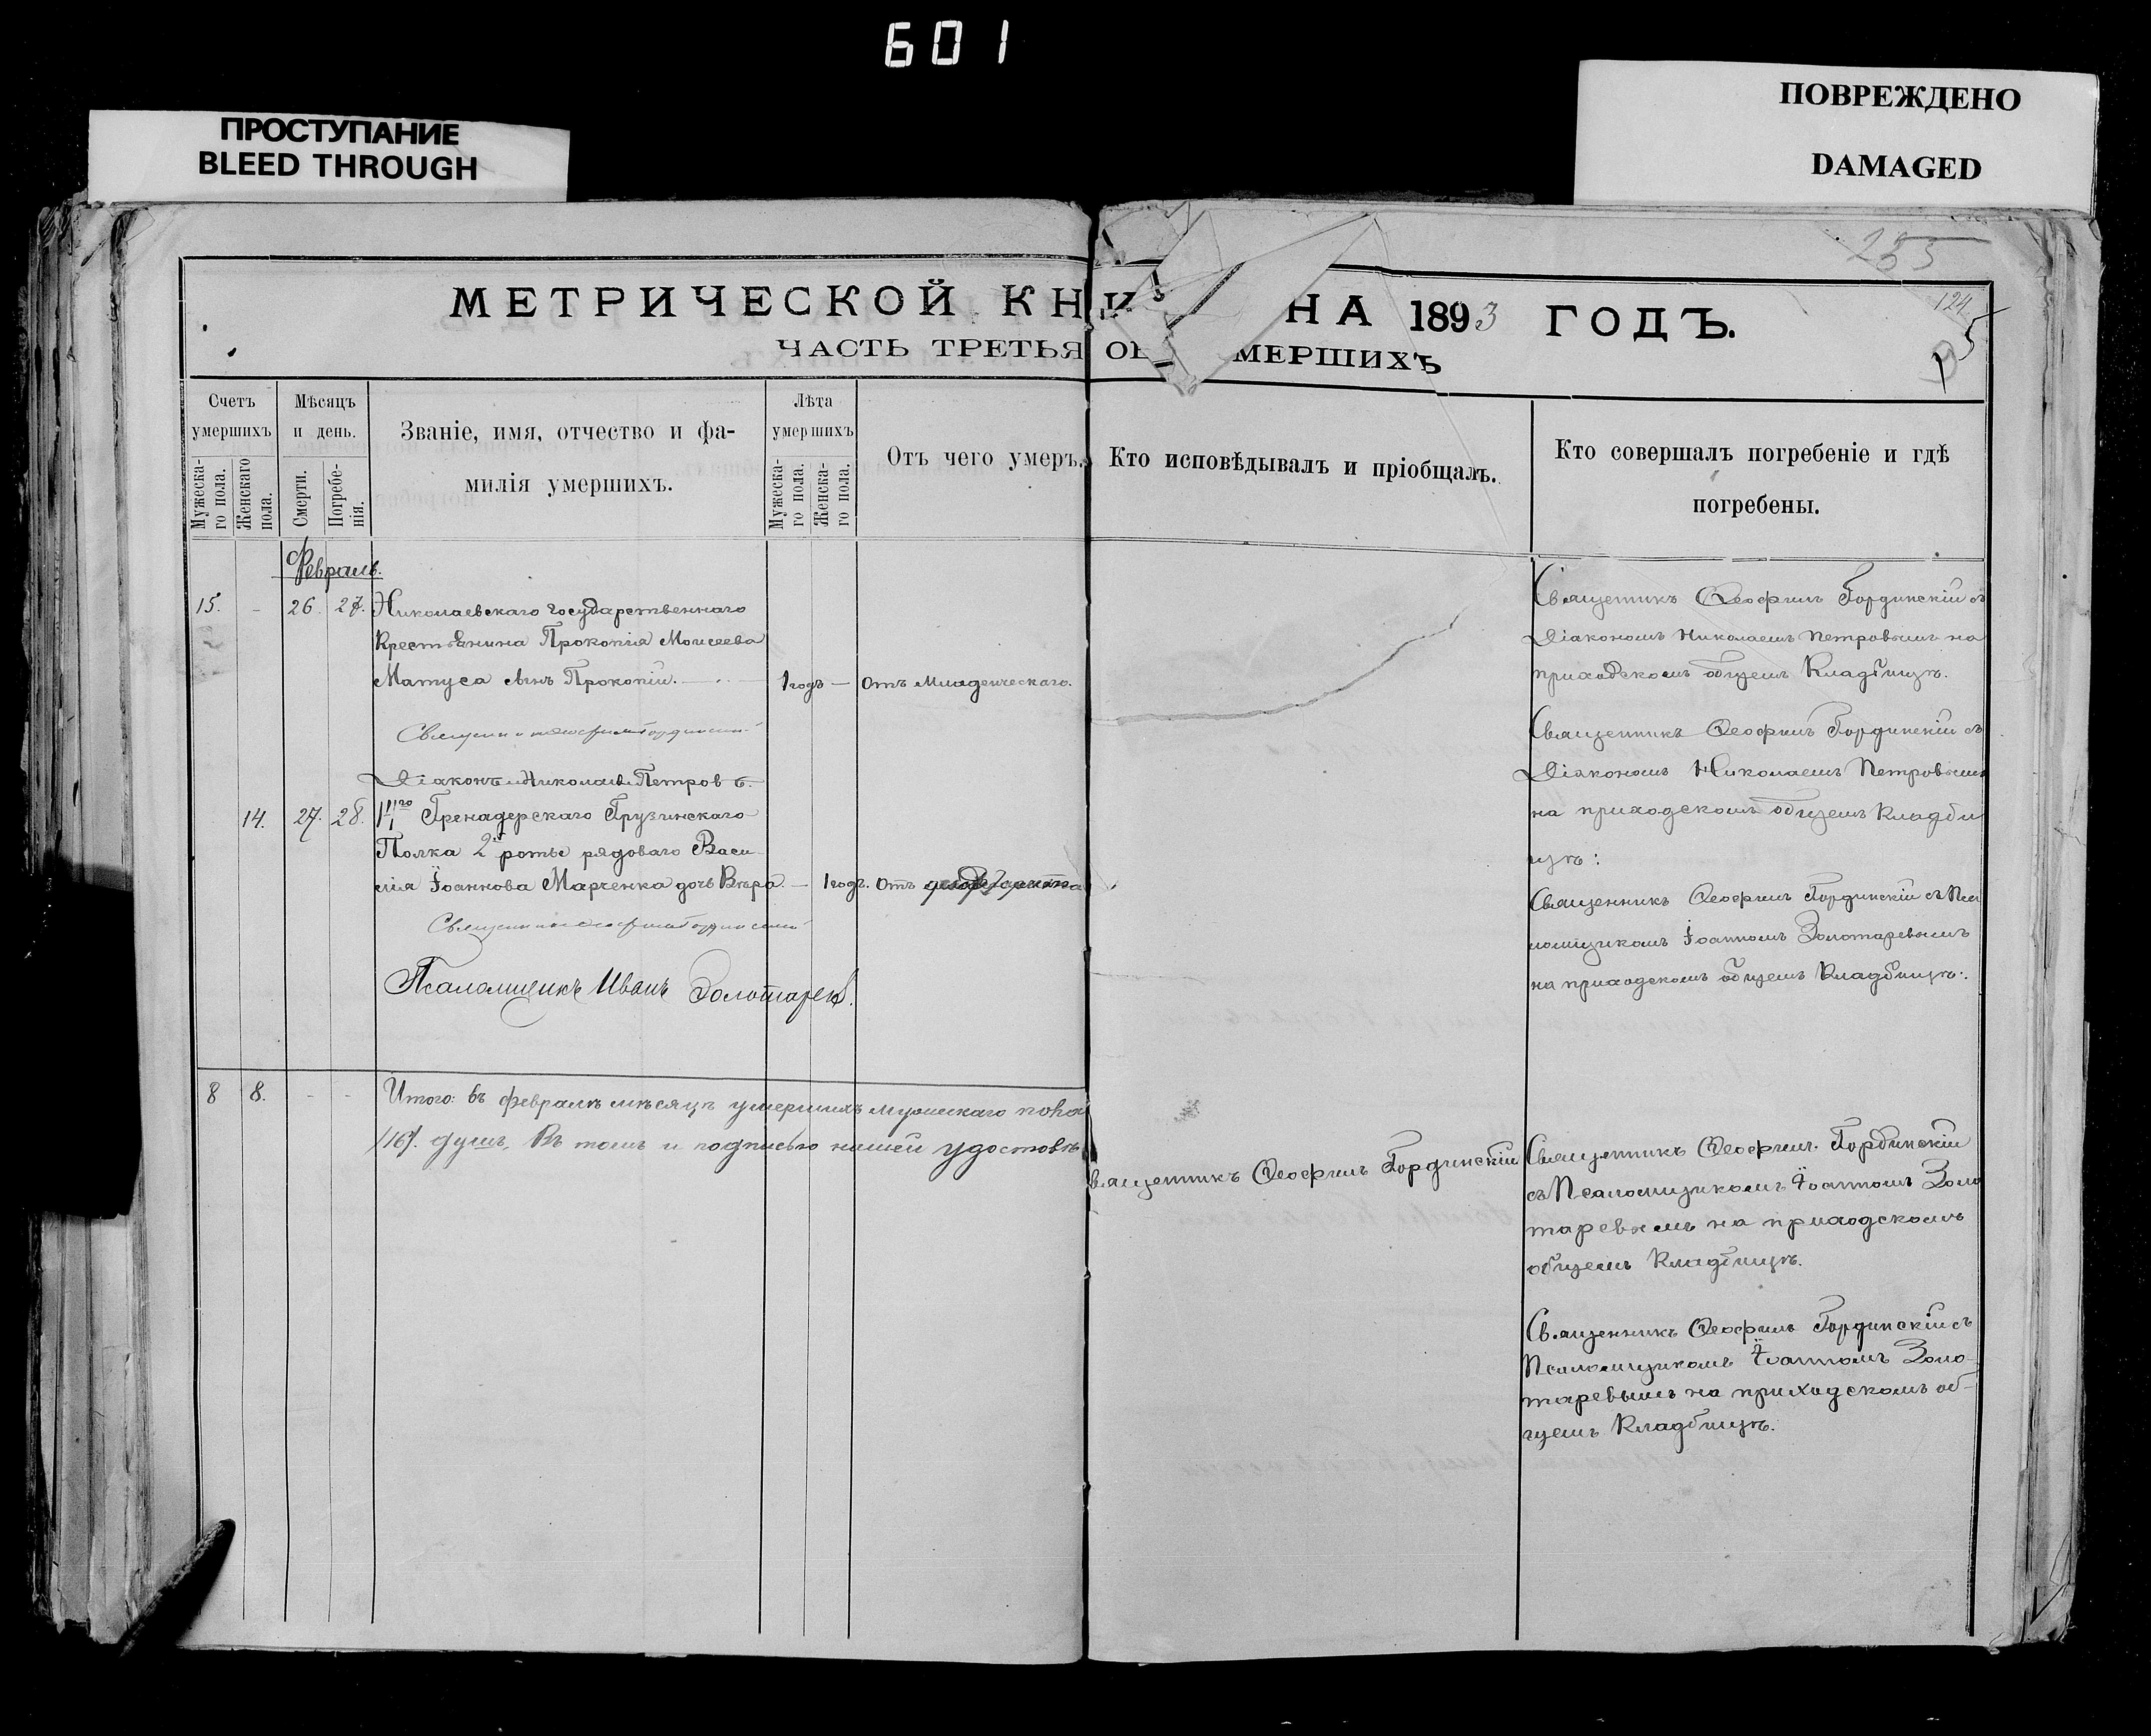 601
ПРОСТУПАНИЕ
BLEED THROUGH
ПОВРЕЖДЕНО
DAMAGED
233
124
МЕТРИЧЕСКОЙ КНИ НА 1893 ГОДЪ.
ЧАСТЬ ТРЕТЬЯ МЕРШИХЪ
5
Счетъ умершихъ
Мужеска-
го пола.
Женскаго
пола.
Мѣсяцъ
и день.
Смерти.
Погребе-
нія.
Званіе, имя, отчество и фа-
милія умершихъ.
Лѣта
умершихъ
Мужеска-
го пола.
Женска-
го пола.
Отъ чего умеръ.
Кто исповѣдывалъ и пріобщалъ.
Кто совершалъ погребеніе и гдѣ
погребены.
Февраль.
15. - 26. 27. Николаевскаго государственнаго
Крестьянина Прокопія Моисеева
Матуса сынъ Прокопій. 1 годъ — Отъ Младенческаго.
Діаконъ Николай Петровъ.
14. 27. 28. Гренадерскаго Грузинскаго
Полка 2й роты рядоваго Васи-
лія Іоаннова Марченка дочь Вѣра. — 1 годъ. Отъ
Псаломщикъ Иванъ Золотаревъ.
8 8. - - Итого: въ февралѣ мѣсяцѣ умершихъ
/16/. душъ. Въ томъ и подписью нашей удостовѣ
Священникъ Ѳеофилъ Гординскій съ
Діакономъ Николаемъ Петровымъ на
приходскомъ общемъ Кладбищѣ.
Священникъ Ѳеофилъ Гординскій съ
Діакономъ Николаемъ Петровымъ
на приходскомъ общемъ Кладби
щѣ:
Священникъ Ѳеофилъ Гординскій съ Пса
ломщикомъ Іоанномъ Золотаревымъ
на приходскомъ общемъ Кладбищѣ:
вященникъ Ѳеофилъ Гординскій
Священникъ Ѳеофилъ Гординскій
съ Псаломщикомъ Іоанномъ Золо
таревымъ на приходскомъ
общемъ Кладбищѣ.
Священникъ Ѳеофилъ Гординскій съ
Псаломщикомъ Іоанномъ Золо-
таревымъ на приходскомъ об-
щемъ Кладбищѣ.